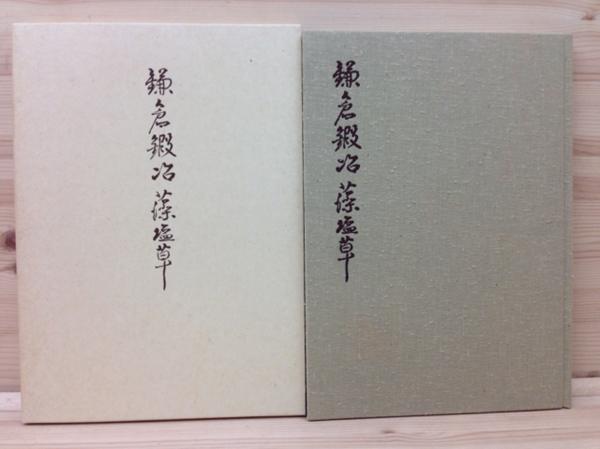 鎌倉鍛冶藻塩草
鎌倉鍛冶藻塩草